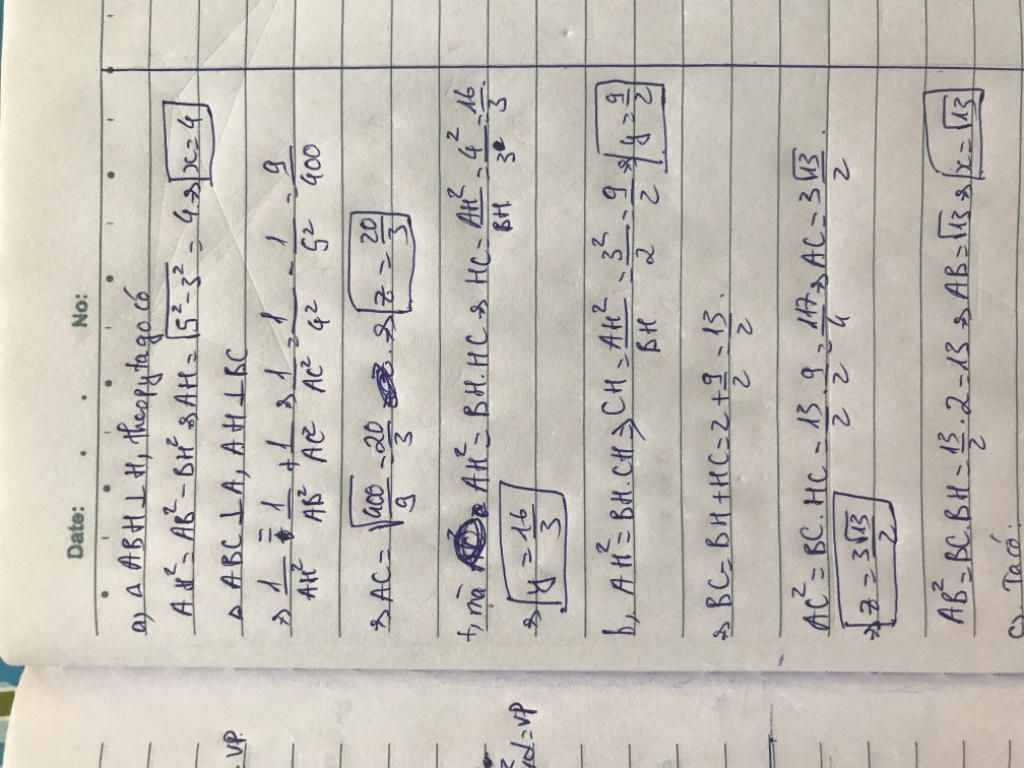 Date: No:
a) △ ABH ⊥ H, theo pytago có
AH² = AB² - BH² => AH = √5² - 3² = 4 => x = 4
△ ABC ⊥ A, AH ⊥ BC
=> 1/AH² = 1/AB² + 1/AC² => 1/AC² = 1/4² - 1/5² = 9/400
=> AC = √400/9 = 20/3 => z = 20/3
+, mà AH² = BH.HC => HC = AH²/BH = 4²/3 = 16/3.
=> y = 16/3
b, AH² = BH.CH => CH = AH²/BH = 3²/2 = 9/2 => y = 9/2
=> BC = BH + HC = 2 + 9/2 = 13/2.
AC² = BC.HC = 13/2 . 9/2 = 117/4 => AC = 3√13/2.
=> z = 3√13/2
AB² = BC.BH = 13/2 . 2 = 13 => AB = √13 => x = √13
c). Ta có:
= VP.
= VP